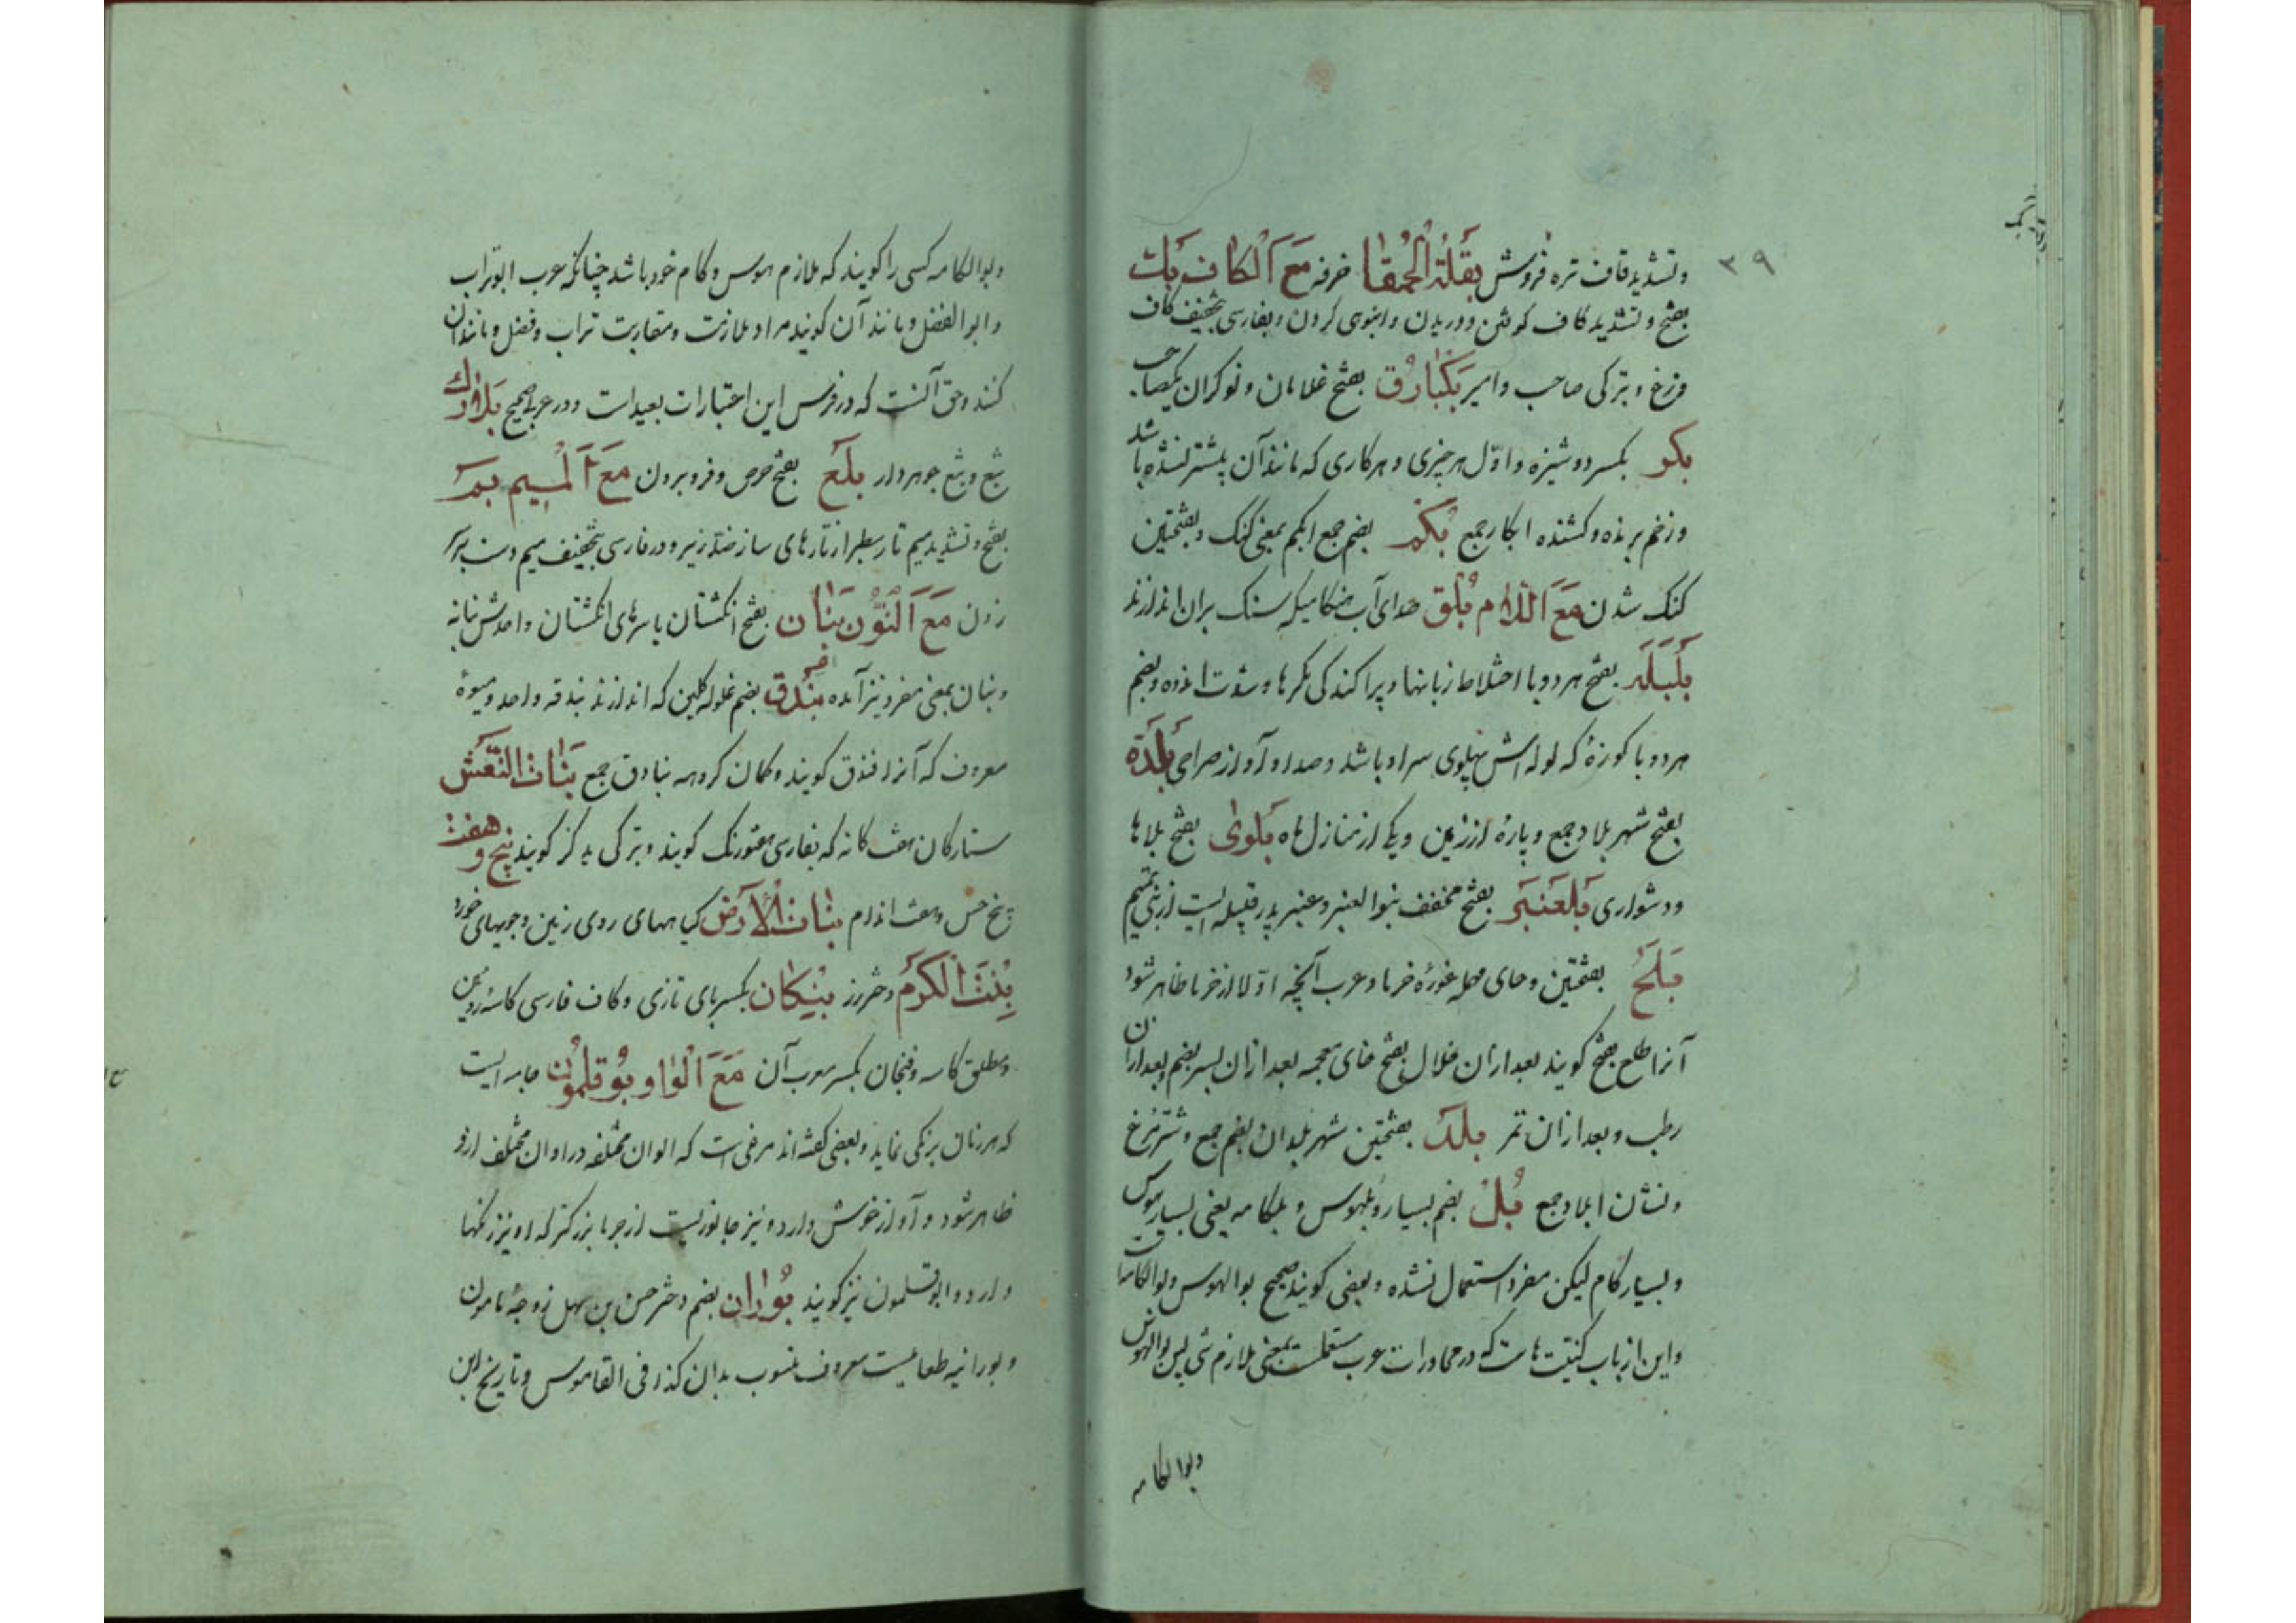 ۳۹
وتشدید قاف تره فروش بقلة الحمقا خرفه مع الکاف بک
بفتح وتشدید کاف کوفتن ودریدن وانبوهی کردن وبفارسی بتخفیف کاف
وزغ وبترکی صاحب وامیر بکبارق بفتح غلامان ونوکران یکصاحب
بکر بکسر دوشیزه واول هر چیزی وهر کاری که مانند آن پیشتر نشده باشد
وزخم برنده وکشنده ابکار جمع بکم بضم جمع ابکم بمعنی کنک وبفتحتین
کنک شدن مع اللام بلق صدای آب هنکامیکه سنک بران اندازند
بلبله بفتح هر دو با اختلاط زبانها وپراکندکی فکرها وشدت اندوه وبضم
هر دو با کوزهٔ که لوله اش پهلوی سر او باشد وصدا وآواز صراحی بلدة
بفتح شهر بلاد جمع وپارهٔ از زمین ویکی از منازل ماه بلوی بفتح بلاها
ودشواری بلعنبر بفتح مخفف بنوا لعنبر وعنبر پدر قبیله ایست از بنی تمیم
بلح بفتحتین وحای مهمله غورهٔ خرما وعرب آنچه اولا از خرما ظاهر شود
آنرا طلع بفتح کویند بعد ازان خلال بفتح خای معجمه بعد ازان بسر بضم وبعد ازان
رطب وبعد ازان تمر بلد بفتحتین شهر بلدان بضم جمع وشتر مرغ
ونشان ابلاد جمع بل بضم بسیار وبلهوس وبلکامه یعنی بسیار هوس
وبسیار کام لیکن مفرد استعمال نشده وبعضی کویند صحیح بوالهوس وبوالکامه
واین از باب کنیت هاست که در محاورات عرب مستعملست بمعنی ملازم شی پس بوالهوس
وبوالکامه
وبوالکامه کسی را کویند که ملازم هوس وکام خود باشد چنانکه عرب ابوتراب
وابوالفضل ومانند آن کویند مراد ملازمت ومقاربت تراب وفضل ومانند آن
کنند وحق آنست که در فرس این اعتبارات بعید است ودر عربی صحیح بلارک
تیغ وتیغ جوهردار بلع بفتح حرص وفرو بردن مع المیم بم
بفتح وتشدید میم تار سطبر از تارهای ساز ضد زیر ودر فارسی بتخفیف میم دست بر سر
زدن مع النون بنان بفتح انکشتان یا سرهای انکشتان واحدش بنانه
وبنان بمعنی مفرد نیز آمده بندق بضم غلوله کلین که اندازند بندقه واحد ومیوهٔ
معروف که آنرا فندق کویند وکمان کروهه بنادق جمع بنات النعش
ستارکان هفت کانه که بفارسی هفتورنک کویند وبترکی یدکز کویند پنج وهفت
پنج حس وهفت اندام بنات الارض کیاههای روی زمین وجویهای خورد
بنت الکرم دختر رز بنکان بکسر بای تازی وکاف فارسی کاسهٔ روئین
ومطلق کاسه وفنجان بکسر معرب آن مع الواو بوقلمون جامه ایست
که هر زمان برنکی نماید وبعضی کفته اند مرغی است که الوان مختلفه در اوان مختلف ازو
ظاهر شود وآواز خوش دارد ونیز جانوریست از حربا بزرکتر که او نیز رنکها
دارد وابوقلمون نیز کویند بوران بضم دختر حسن بن سهل زوجهٔ مامون
وبورانیه طعامیست معروف منسوب بدان کذا فی القاموس وتاریخ ابن